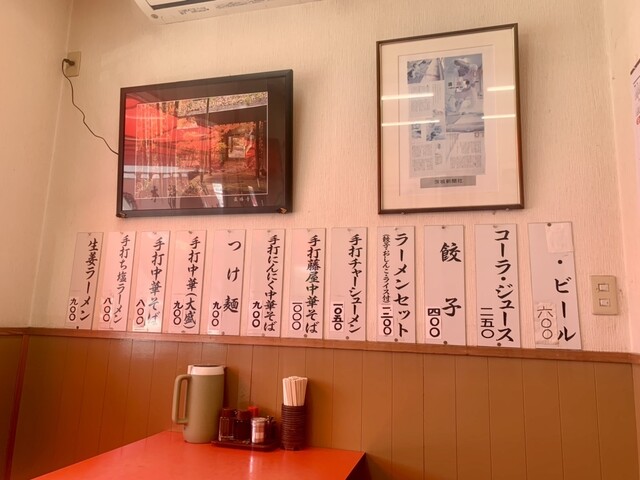 ・ビール
六〇〇
コーラ・ジュース
二五〇
餃子
四〇〇
ラーメンセット
(餃子・おしんこ・ライス付)
手打チャーシューメン
一〇五〇
手打藤屋中華そば
一〇〇〇
手打にんにく中華そば
九〇〇
つけ麺
九〇〇
手打中華(大盛)
九〇〇
手打中華そば
八〇〇
手打ち塩ラーメン
八〇〇
生姜ラーメン
九〇〇